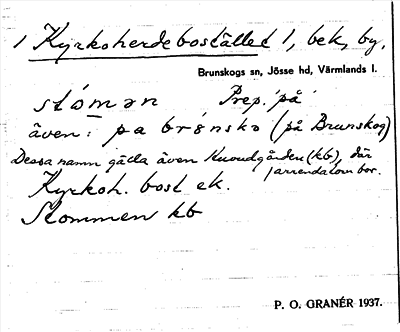 1 Kyrkoherdebostället 1, bek, by.
Brunskogs sn, Jösse hd, Värmlands l.
stómən Prep. 'på'
även: pa brónskə (på Brunskog)
Dessa namn gälla även Huvudgården (kb), där
jarrendatorn bor.
Kyrkoh. bost ek.
Stommen kb
P. O. GRANÉR 1937.